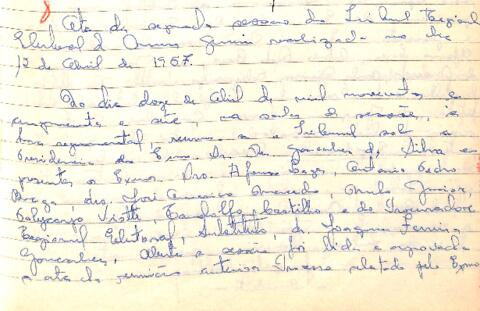 8
Ata da segunda sessão do Tribunal Regional
Eleitoral de realizada no dia
12 de abril de 1957.
Ao dia doze de abril de mil novecentos e
cinquenta e sete, na sala de sessão, à
hora regimental, reuniu-se o Tribunal sob a
Presidencia do Exmo. Dr. Gonçalves da Silva e
presentes o Exmos. Drs. Afonso Antonio Pedro
Braga, dro. José Americo Macedo, Junior,
Policarpo Viotti, Castilho e do Procurador
Regional Eleitoral, Substituto, dr. Joaquim Ferreira
Gonçalves, Aberta a sessão foi lida e aprovada
a ata da reunião anterior Processo relatado pelo Exmo